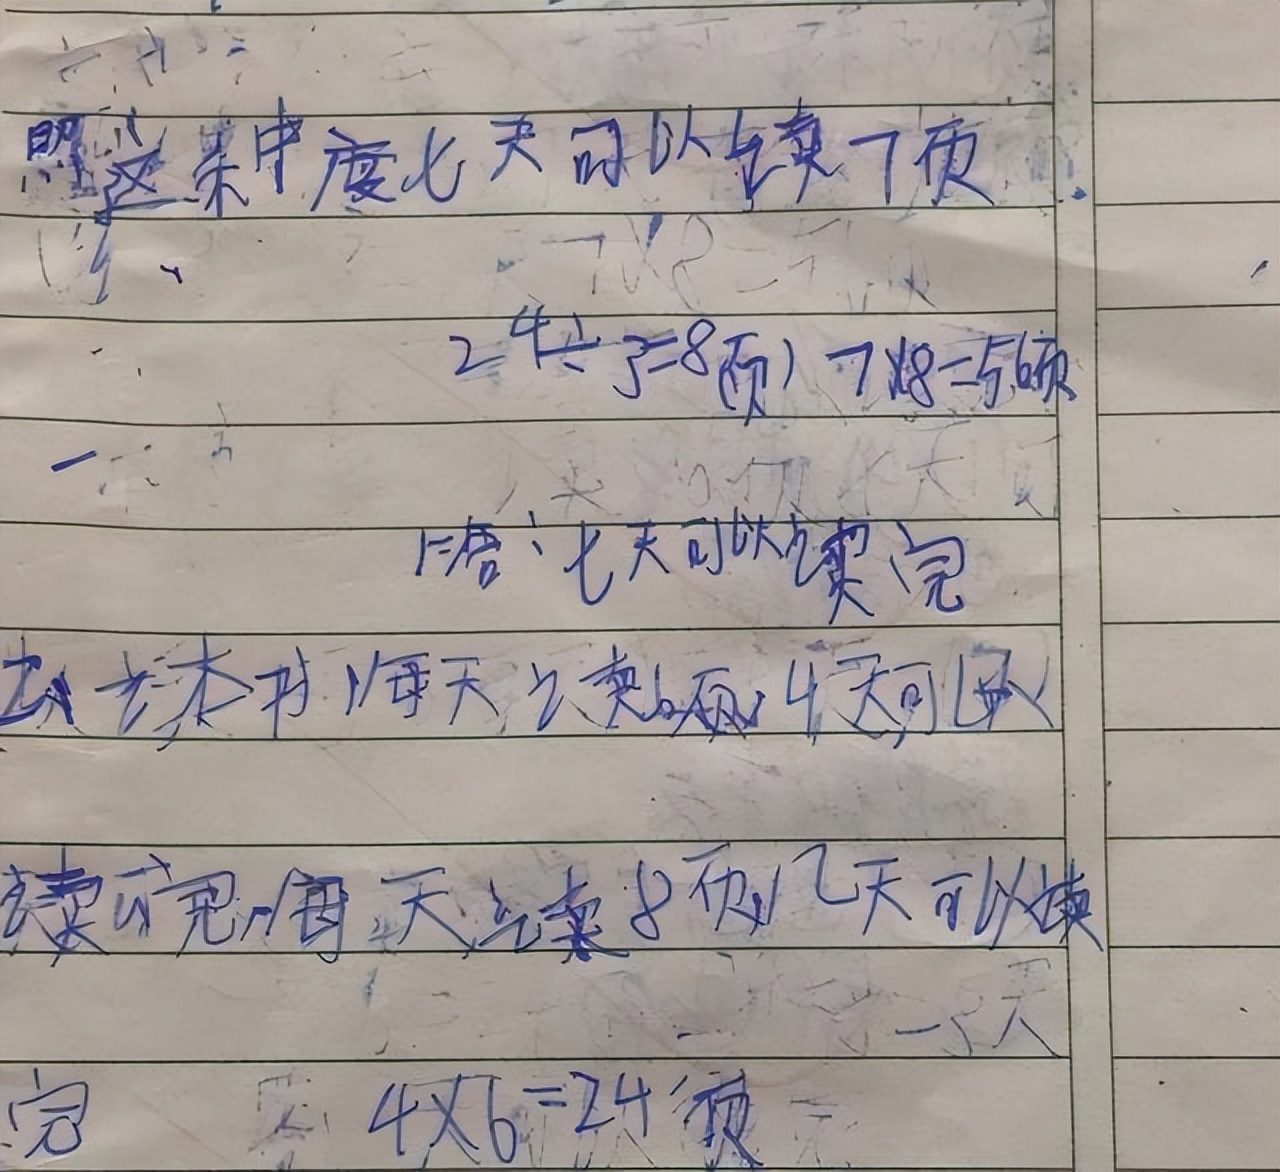 照这朱中度七天可以读了页
24÷3=8(页) 7×8=56页
答、七天可以读完
本书,每天读6页,4天可以
读完,每天读8页,几天可以读
完 4×6=24页